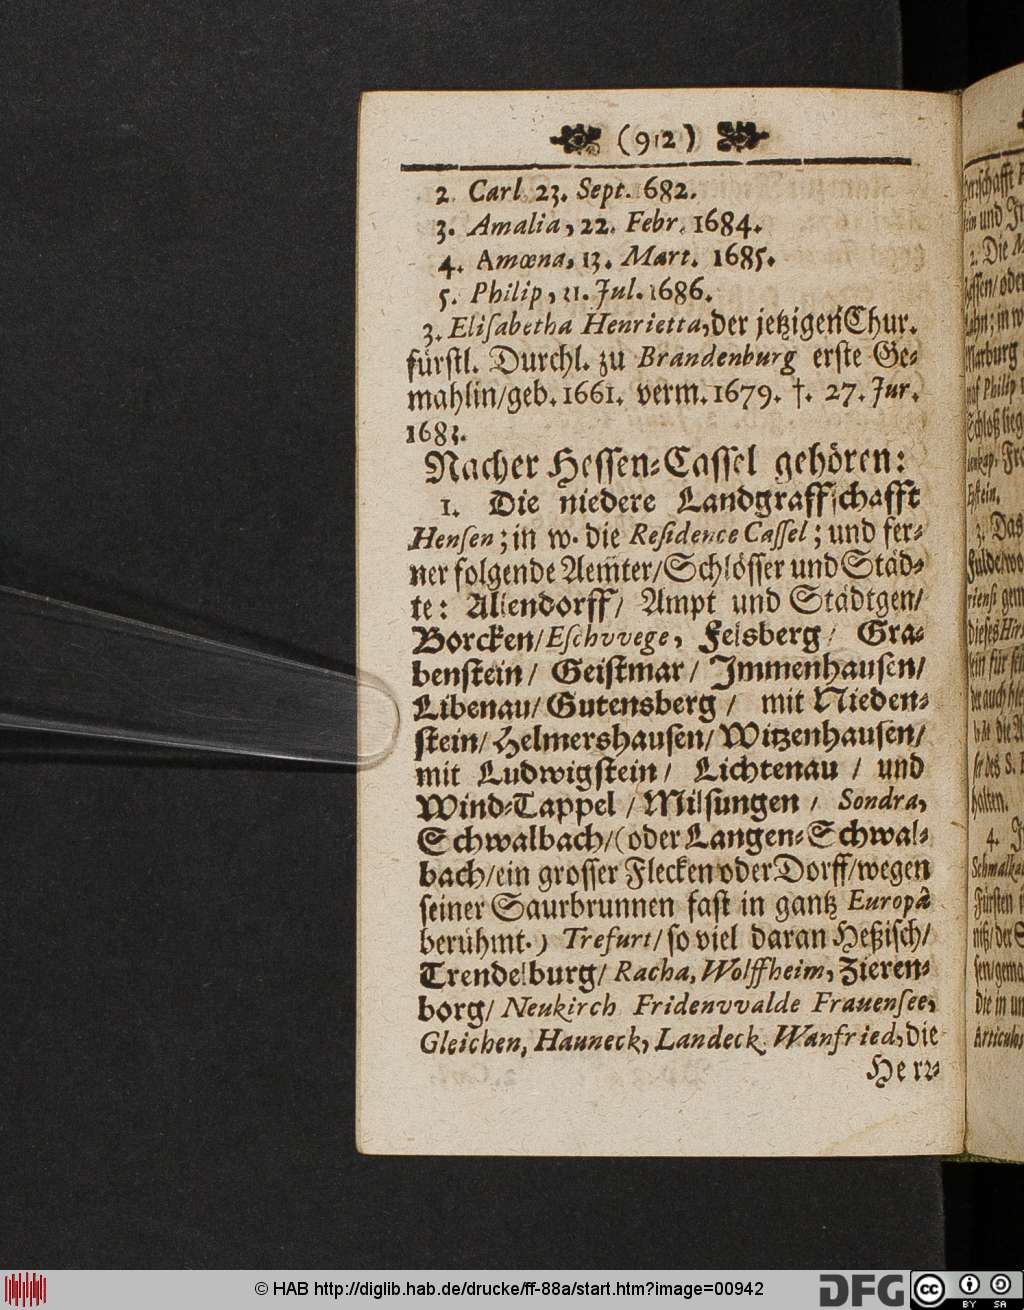 (912)
2. Carl 23. Sept. 682.
3. Amalia, 22. Febr. 1684.
4. Amœna, 13. Mart. 1685.
5. Philip, 11. Jul. 1686.
3. Eliſabetha Henrietta, der jetzigen Chur.
fürſtl. Durchl. zu Brandenburg erſte Ge⸗
mahlin/geb. 1661. verm. 1679. †. 27. Jur.
1683.
Nacher Heſſen⸗Caſſel gehören:
1. Die niedere Landgraffſchafft
Henſen; in w. die Reſidence Caſſel; und fer⸗
ner folgende Aem̃ter/Schlöſſer und Städ⸗
te: Allendorff/ Ampt und Städtgen/
Borcken/Eſchvvege, Felsberg/ Gra⸗
benſtein/ Geiſtmar/ Immenhauſen/
Libenau/ Gutensberg/ mit Nieden⸗
ſtein/ Helmershauſen/ Witzenhauſen/
mit Ludwigſtein/ Lichtenau / und
Wind⸗Tappel / Milſungen / Sondra,
Schwalbach/(oder Langen⸗Schwal⸗
bach/ein groſſer Flecken oder Dorff/wegen
ſeiner Saurbrunnen faſt in gantz Europâ
berühmt.) Trefurt/ ſo viel daran Heßiſch/
Trendelburg/ Racha, Wolffheim, Zieren⸗
borg/ Neukirch Fridenvvalde Frauenſee,
Gleichen, Hauneck, Landeck. Wanfried, die
Herr⸗
und
2. Die
Marburg
Philip
3. Das
gem
dieſes Hir
ſein für
der auch
die A
des S.
halten.
4.
Schmalka
Fürſten
der S
die in un
Articulos
© HAB http://diglib.hab.de/drucke/ff-88a/start.htm?image=00942
DFG
cc
BY SA